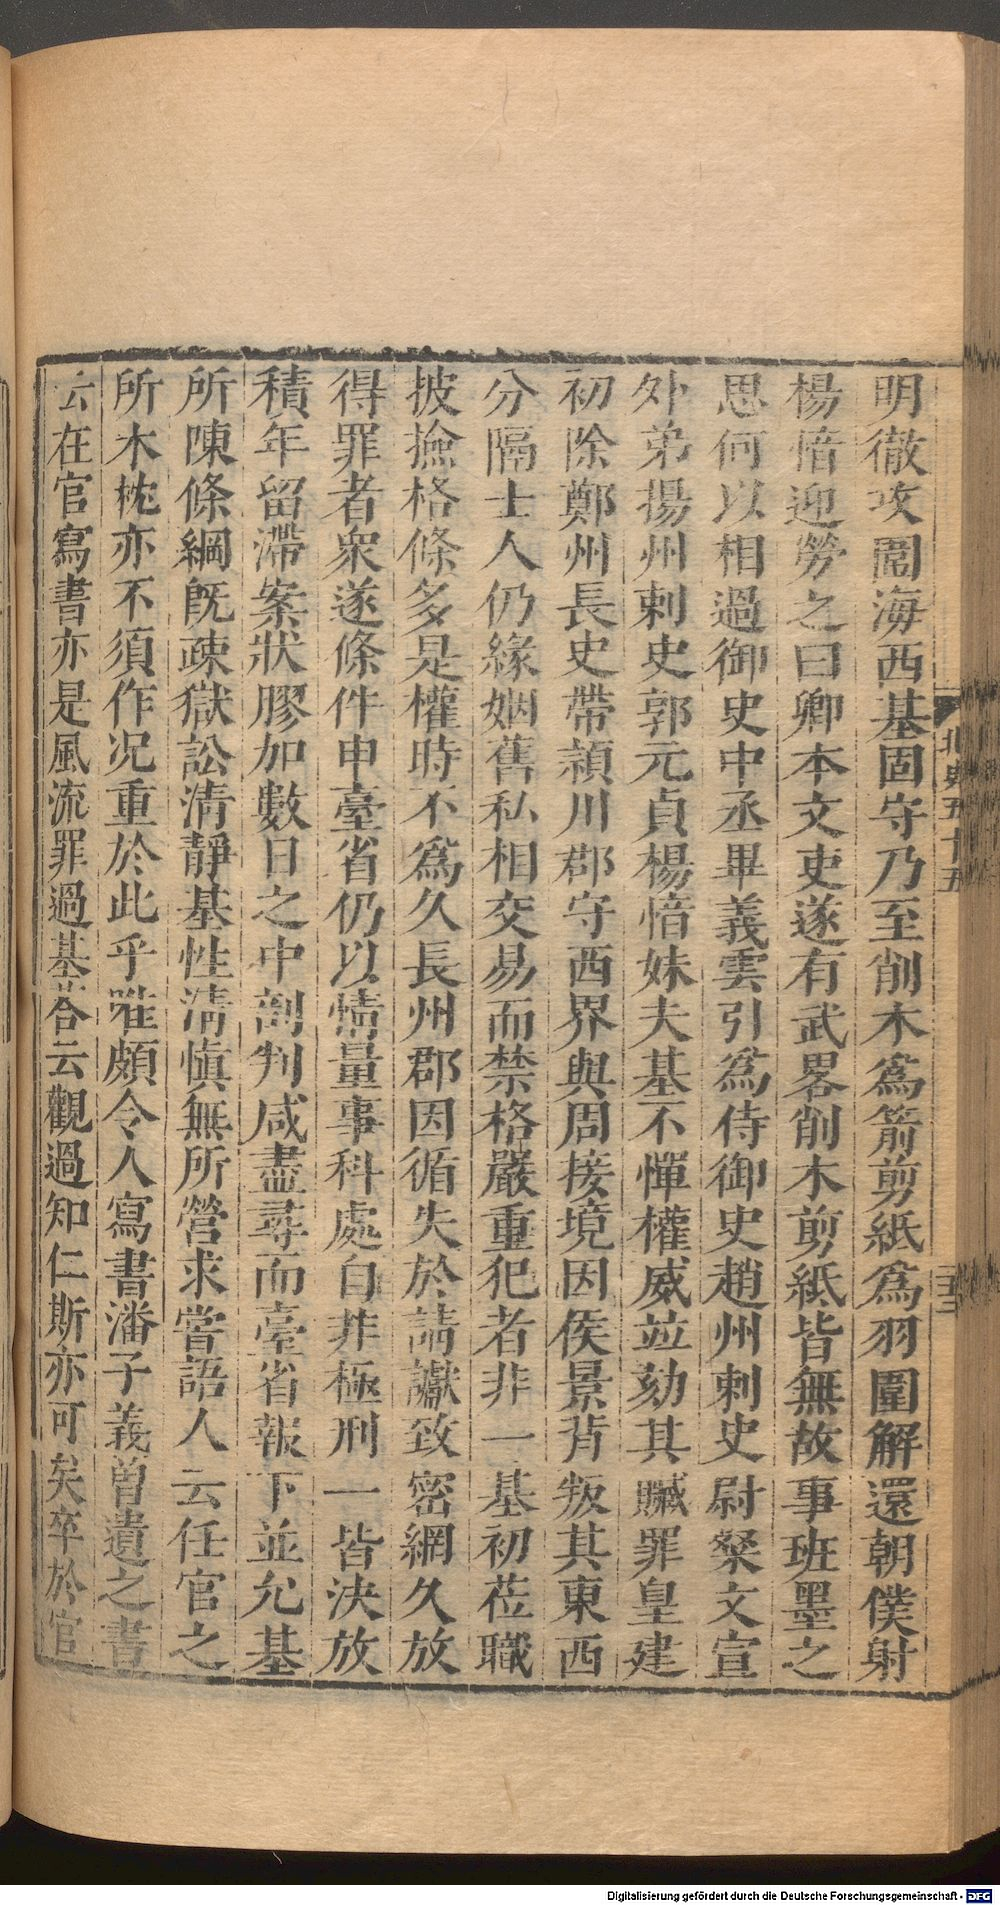 明徹攻圍海西基固守乃至削木爲箭剪紙爲羽圍解還朝僕射
楊愔迎勞之曰卿本文吏遂有武畧削木剪紙皆無故事班墨之
思何以相過御史中丞畢義雲引爲侍御史趙州刺史尉粲文宣
外弟揚州刺史郭元貞楊愔妹夫基不憚權威竝劾其贓罪皇建
初除鄭州長史帶潁川郡守西界與周接境因侯景背叛其東西
分隔士人仍緣姻舊私相交易而禁格嚴重犯者非一基初莅職
披撿格條多是權時不爲久長州郡因循失於請讞致密網久放
得罪者衆遂條件申臺省仍以情量事科處自非極刑一皆決放
積年留滯案狀膠加數日之中剖判咸盡尋而臺省報下並允基
所陳條綱既疎獄訟清靜基性清愼無所營求嘗語人云任官之
所木枕亦不須作况重於此乎唯頗令人寫書潘子義曽遺之書
云在官寫書亦是風流罪過基荅云觀過知仁斯亦可矣卒於官
北史五十五
Digitalisierung gefördert durch die Deutsche Forschungsgemeinschaft - DFG